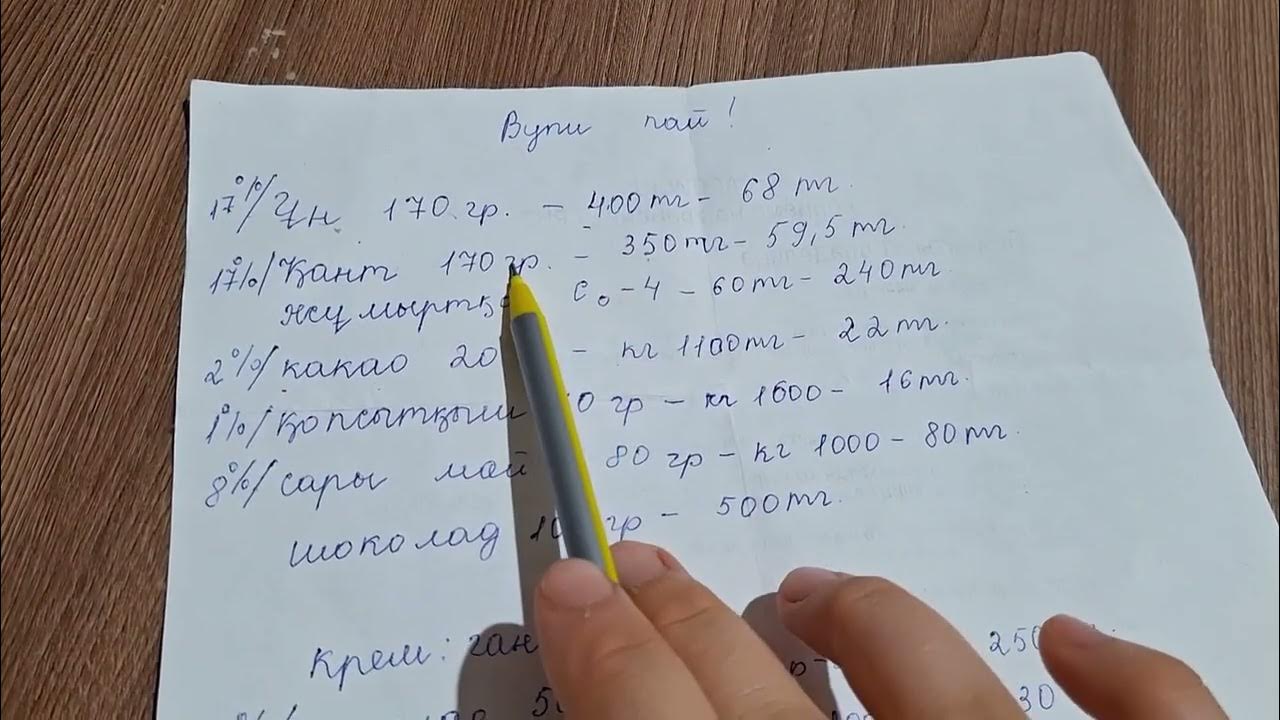 Вупи пай!
17%/ Ұн 170 гр. – 400тг – 68 тг.
17%/ Қант 170 гр. – 350тг – 59,5 тг.
С₀ – 4 – 60тг – 240тг
2%/ какао 20 – кг 1100тг – 22тг.
1%/ қопсытқыш 0 гр – кг 1600 – 16тг.
8%/ сары май 80 гр – кг 1000 – 80тг.
шоколад гр – 500тг.
Крем: 250
30